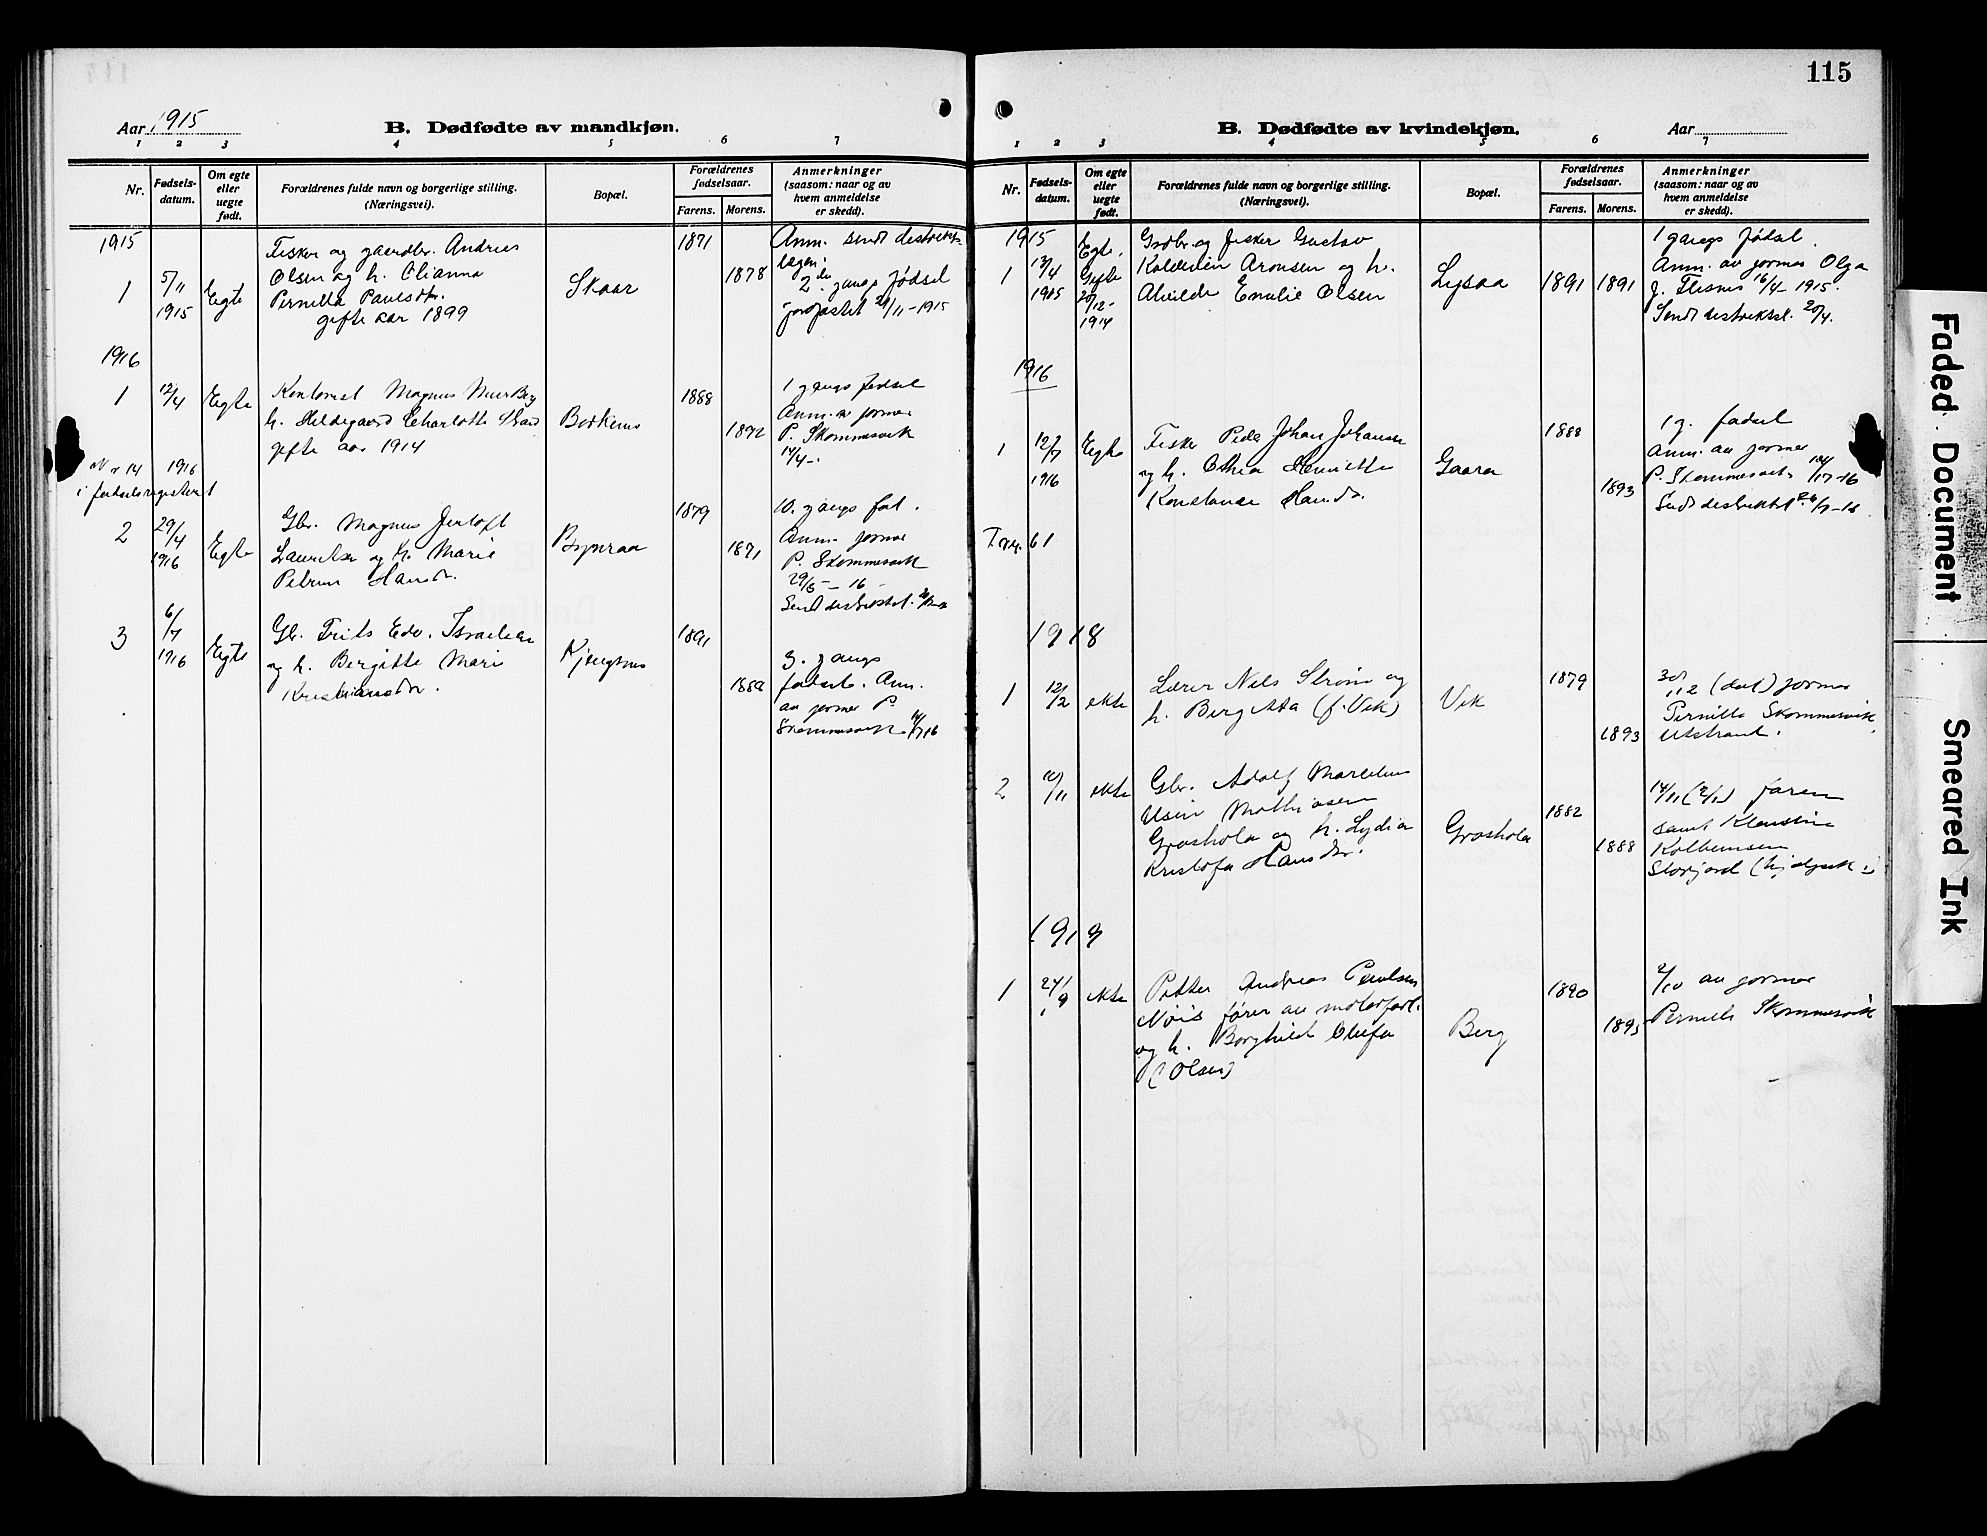 115
Aar 1915
B. Dødfødte av mandkjøn.
1 2 3 4 5 6 7
Nr.
Fødsels-
datum.
Om egte
eller
uegte
født.
Forældrenes fulde navn og borgerlige stilling.
(Næringsvei).
Bopæl.
Forældrenes
fødselsaar.
Farens. Morens.
Anmerkninger
(saasom: naar og av
hvem anmeldelse
er skedd).
1915
1
5/11
1915
Egte
Fisker og gaardbr. Andreas
Olsen og h. Olianna
Pernille Paulsdtr.
gifte aar 1899
Skaar
1871
1878
Anm. sendt
2den gangs fødsel
21/11-1915
1916
1
12/4
Egte
Kontorist Magnus
h. Hildegaard Charlotte
gifte aar 1914
1888
1892
1 gangs fødsel
Anm. av jormor
P. Skommesvik
14/4-.
Nr 14 1916
i fødselsregisteret
2
29/4
1916
Egte
Gbr. Magnus Jentoft
Lauritsen og h. Marie
Petrine Hansdr.
1879
1871
10. gangs fød.
Anm. jormor
P. Skommesvik
29/5 - 16
Sendt
3
6/7
1916
Egte
Gb. Frits Edv. Israelsen
og h. Bergitte Marie
Kristiansdr.
1891
3. gangs
fødsel. Anm.
av jormor P.
Skommesvik 14/7 16
B. Dødfødte av kvindekjøn.
Aar
1 2 3 4 5 6 7
Nr.
Fødsels-
datum.
Om egte
eller
uegte
født.
Forældrenes fulde navn og borgerlige stilling.
(Næringsvei).
Bopæl.
Forældrenes
fødselsaar.
Farens. Morens.
Anmerkninger
(saasom: naar og av
hvem anmeldelse
er skedd).
1915
1
13/4
1915
Egte,
Gifte
20/12-
1914
Grdbr. og fisker Gustav
Aronsen og h.
Alvilde Emilie Olsen
Lysaa
1891 1891
1 gangs fødsel.
Anm. av jormor Olga
J. Flesnes 16/4-1915.
Sendt distriktsl. 20/4.
1916
1
12/7
1916
Egte
Fisker Peder Johan Johansen
og h. Othea Henriette
Konstanse Hansdr.
Gaara
1888
1893
1 g. fødsel
Anm. av jormor
P. Skommesvik 14/7-16
Sendt distriktsl. 26/7-16
61
1918
1
12/2
ekte
Lærer Nils Strøm og
h. Bergitta (f. Vik)
Vik
1879
1893
(dat) jormor
Pernille Skommesvik
Utstrand.
2
10/11
ekte
Gbr. Adolf Marelius
Mathiasen
Grashola og h. Lydia
Kristofa Hansdr.
Grashola
1882
1888
14/11 faren
samt
Kolbeinsen
Storjord
1919
1
24/9
ekte
Petter Andreas Paulsen
Nøis fører av motorfart.
og h. Borghild Olufa
(Olsen)
Berg
1890
1895
2/10 av jormor
Pernille Skommesvik
Faded Document
Smeared Ink